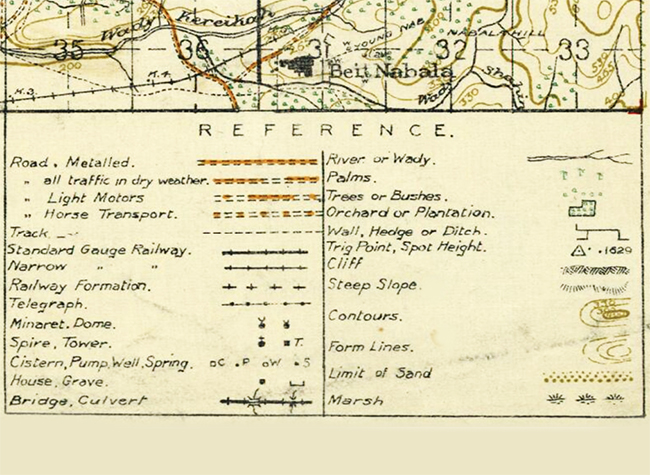 Wady Kereikah
35 36 31 32 33
YOUNG NAB
NABALA HILL
Beit Nabala
Wady
500
330
330
K.3. K.4.
REFERENCE.
Road. Metalled.
" all traffic in dry weather.
" Light Motors
" Horse Transport.
Track
Standard Gauge Railway.
Narrow " "
Railway Formation.
Telegraph.
Minaret. Dome.
Spire, Tower. T.
Cistern, Pump, Well, Spring. C .P oW .S
House, Grave.
Bridge, Culvert
River or Wady.
Palms.
Trees or Bushes.
Orchard or Plantation.
Wall, Hedge or Ditch.
Trig Point, Spot Height. .1629
Cliff
Steep Slope.
Contours.
Form Lines.
Limit of Sand
Marsh